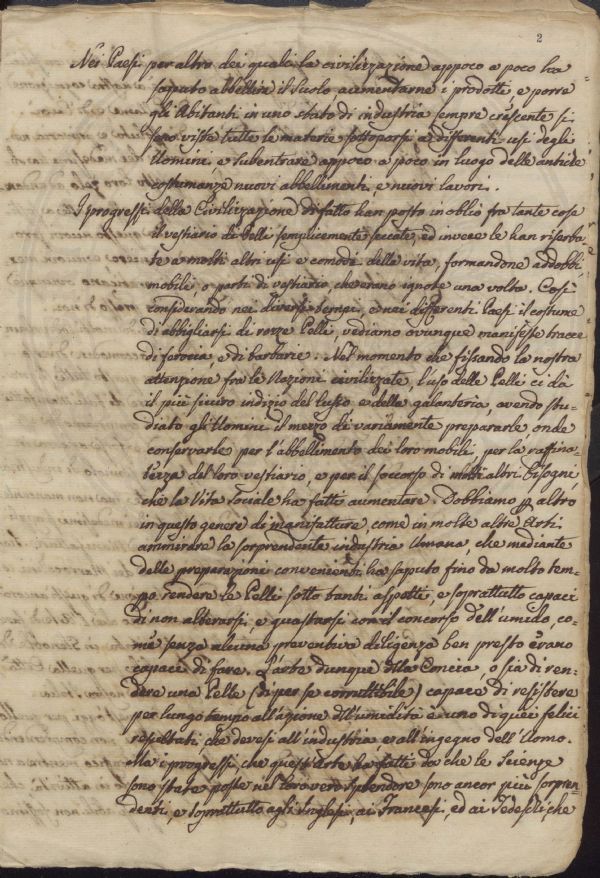 2
Nei Paesi per altro dei quali la civilizzazione appoco a poco ha
saputo abbellire il Suolo aumentarne i prodotti, e porre
gli Abitanti in uno stato di industria sempre crescente si
sono viste tutte le materie sottoporsi a differenti usi degli
Uomini, e subentrare appoco a poco in luogo delle antiche
costumanze nuovi abbellimenti, e nuovi lavori.
I progressi della Civilizzazione di fatto han posto in oblio fra tante cose
il vestiario di Pelli semplicemente seccate, ed invece le han riserba-
te a molti altri usi e comodi della vita, formandone addobbi
mobili, o parti di vestiario, che erano ignote una volta. Così
considerando nei diversi tempi, e nei differenti Paesi il costume
d'abbigliarsi di rozze Pelli, vediamo ovunque manifeste tracce
di ferocia, e di barbarie. Nel momento che fissando la nostra
attenzione fra le Nazioni civilizzate, l'uso delle Pelli ci dà
il più sicuro indizio del lusso e della galanteria, avendo stu-
diato gli Uomini il mezzo di variamente prepararle onde
conservarle per l'abbellimento dei loro mobili, per la raffina-
tezza del loro vestiario, e per il soccorso di molti altri bisogni,
che la Vita sociale ha fatti aumentare. Dobbiamo p altro
in questo genere di manifatture, come in molte altre Arti
ammirare la sorprendente industria Umana, che mediante
delle preparazioni convenienti ha saputo fino da molto tem-
po rendere le Pelli sotto tanti aspetti, e soprattutto capaci
di non alterarsi, e guastarsi con il concorso dell'umido, co-
me senza alcuna preventiva diligenza ben presto erano
capaci di fare. L'arte dunque della Concia, o sia di ren-
dere una Pelle (di per se corruttibile) capace di resistere
per lungo tempo all'azione dll'umidità è uno di quei felici
resultati, che devesi all'industria e all'ingegno dell'Uomo.
Ma i progressi, che quest'Arte ha fatti da che le Scienze
sono state poste nel loro vero splendore sono ancor più sorpren-
denti, e soprattutto agli Inglesi, ai Francesi, ed ai Tedeschi, che